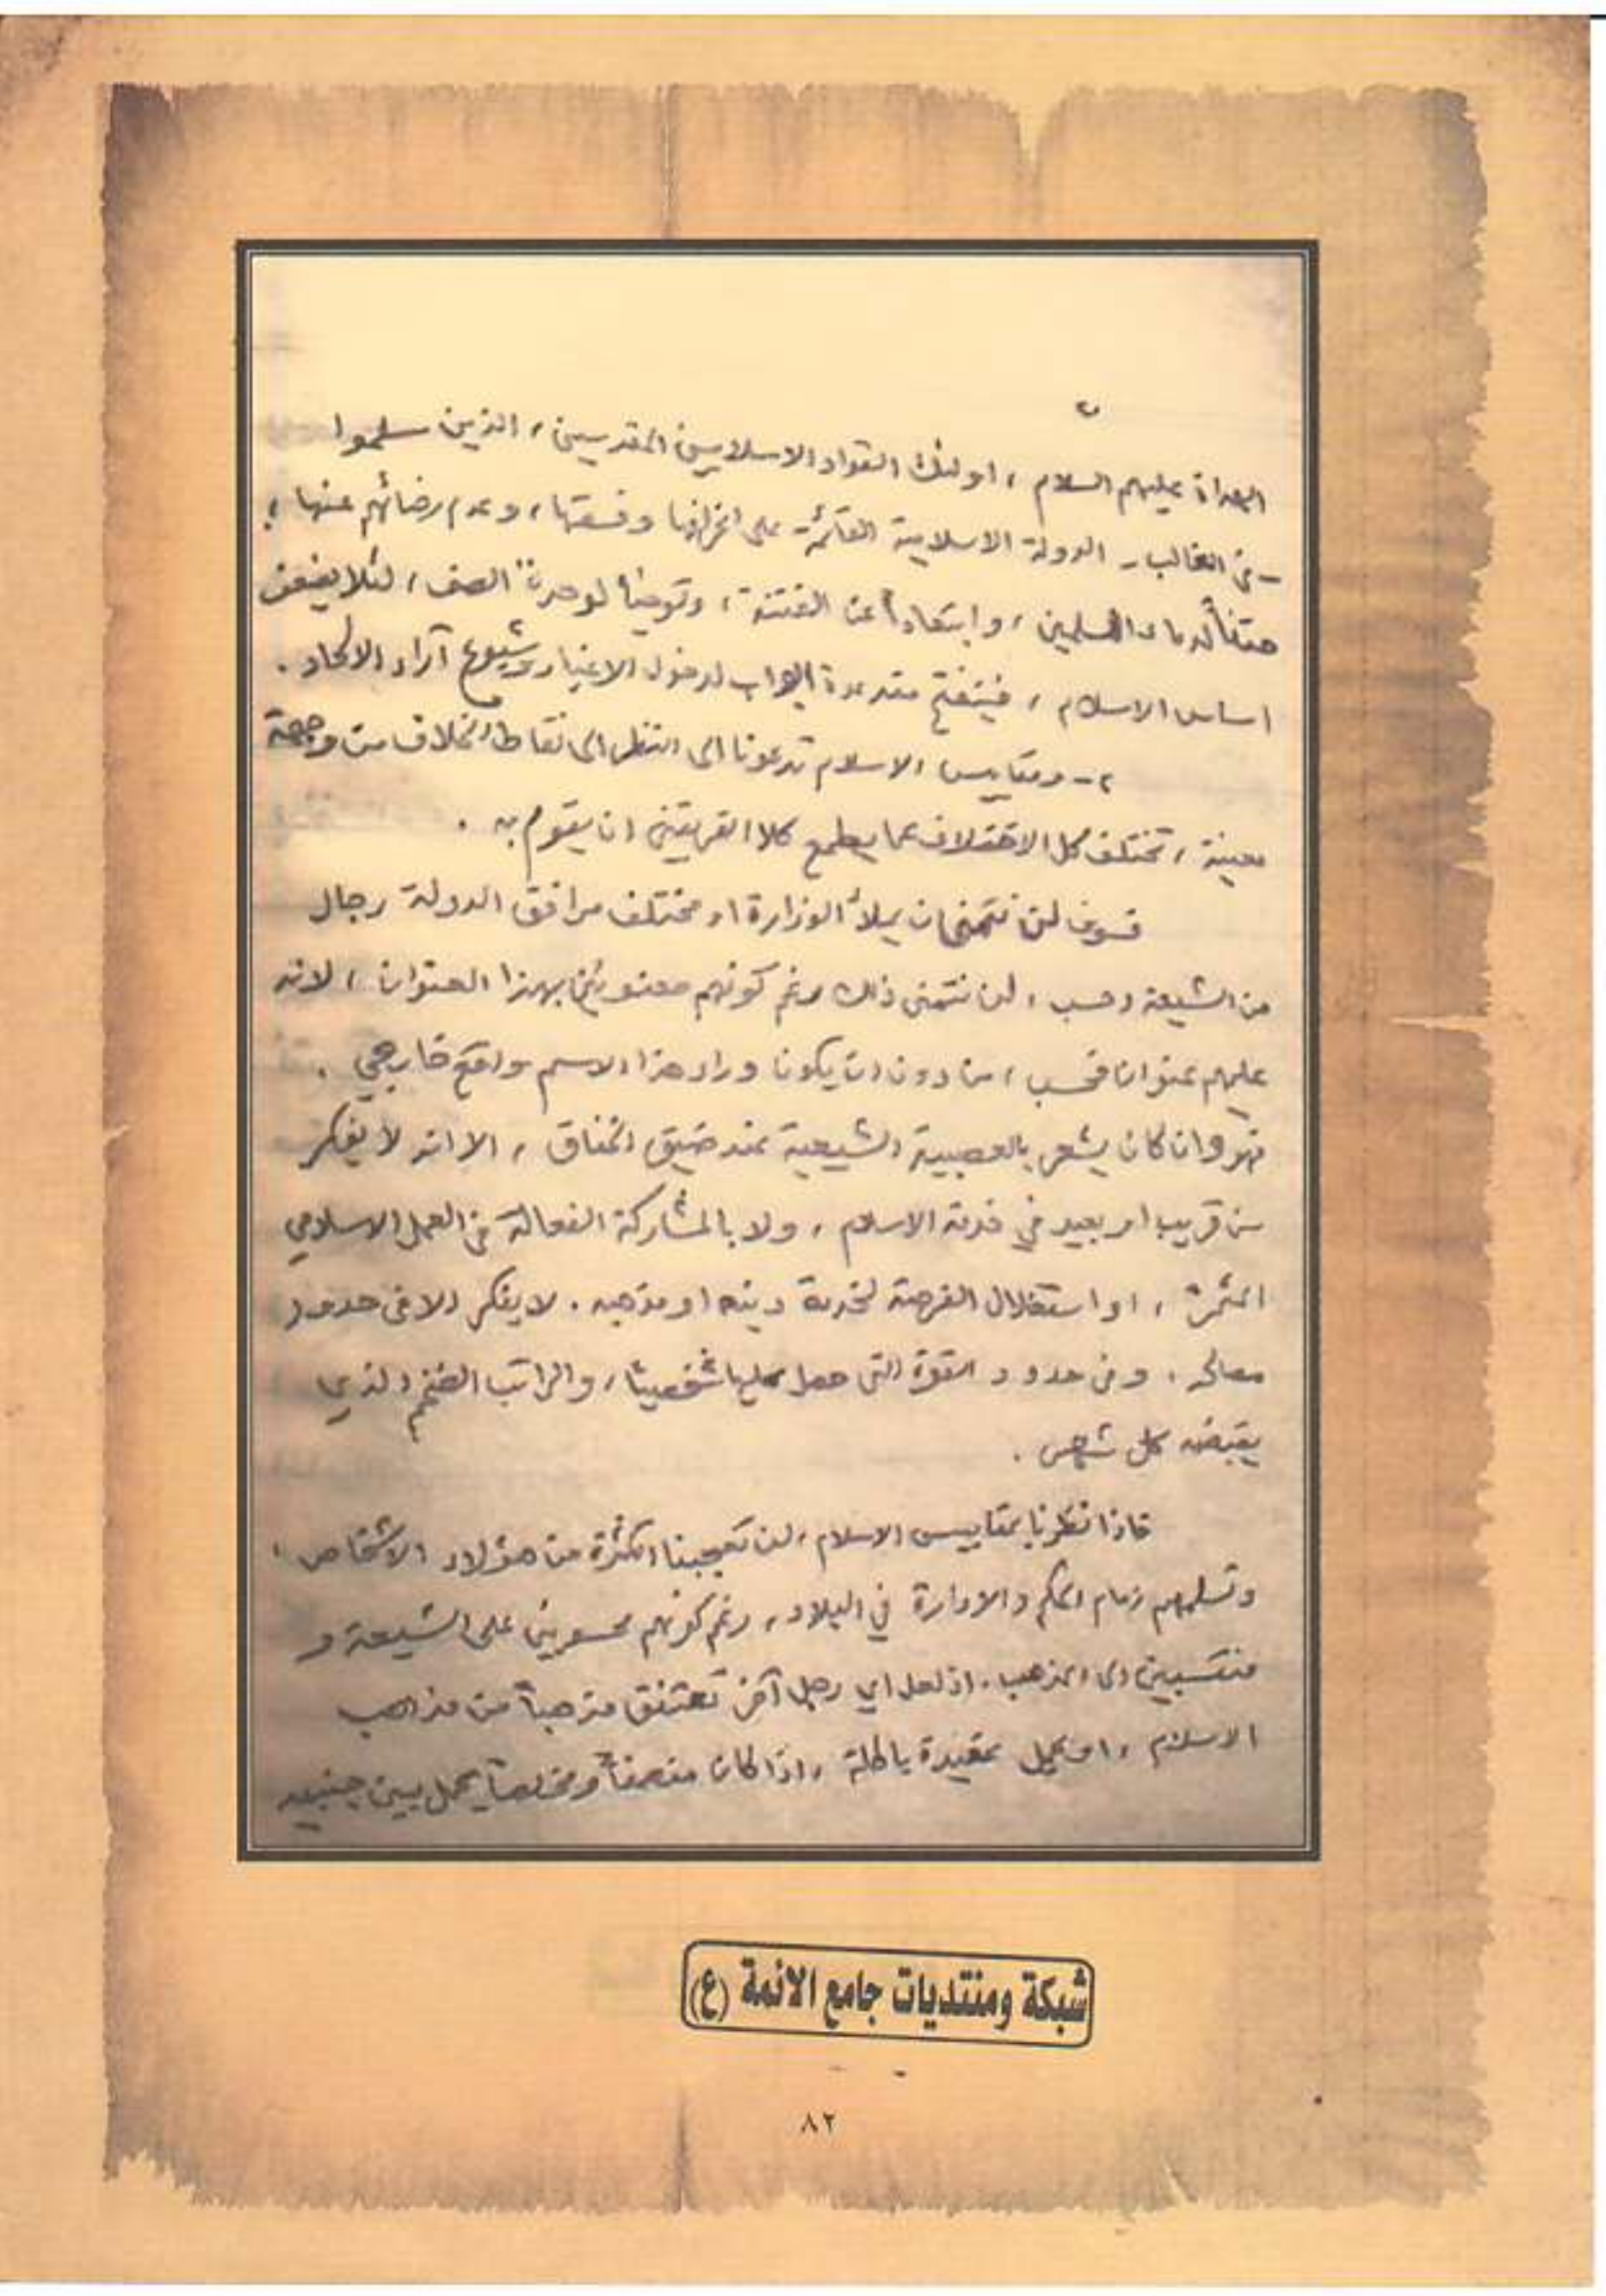 الهداة عليهم السلام ، اولئك القواد الاسلاميين المقدسين ، الذين سلموا
- في الغالب - الدولة الاسلامية القائمة على انحرافها وفسقها ، وعدم رضائهم عنها ؛
حقناً لدماء المسلمين ، وابتعاداً عن الفتنة ، وتوخياً لوحدة الصف ، لئلا يضعف
اساس الاسلام ، فينفتح عدة ابواب لدخول الاغيار وشيوع آراء الالحاد .
٢ - ومقاييس الاسلام تدعونا الى النظر الى نقاط الخلاف من وجهة
معينة ، تختلف كل الاختلاف عما يطمع كلا الفريقين ان يقوم به .
فسوف لن نتمنى ان يملأ الوزارة او مختلف مرافق الدولة رجال
من الشيعة وحسب ، لن نتمنى ذلك رغم كونهم معنونين بهذا العنوان ، لانه
عليهم عنوان فحسب ، من دون ان يكون وراء هذا الاسم واقع خارجي .
فهو وان كان يشعر بالعصبية الشيعية عند ضيق الخناق ، الا انه لا يفكر
من قريب او بعيد في خدمة الاسلام ، ولا بالمشاركة الفعالة في العمل الاسلامي
المثمر ، او استغلال الفرصة لخدمة دينه او مذهبه . لا يفكر الا في حدود
مصالحه ، وفي حدود القوة التي حصل عليها شخصيا ، والراتب الضخم الذي
يقبضه كل شهر .
فاذا نظرنا بمقاييس الاسلام ، لن تعجبنا الكثرة من هؤلاء الاشخاص ،
وتسلمهم زمام الحكم والادارة في البلاد ، رغم كونهم محسوبين على الشيعة و
منتسبين الى المذهب . اذ لعل اي رجل آخر تعتنق مذهباً من مذاهب
الاسلام ، او يحمل عقيدة باطلة ، اذا كان منصفاً ومخلصاً يحمل بين جنبيه
شبكة ومنتديات جامع الائمة (ع)
٨٢